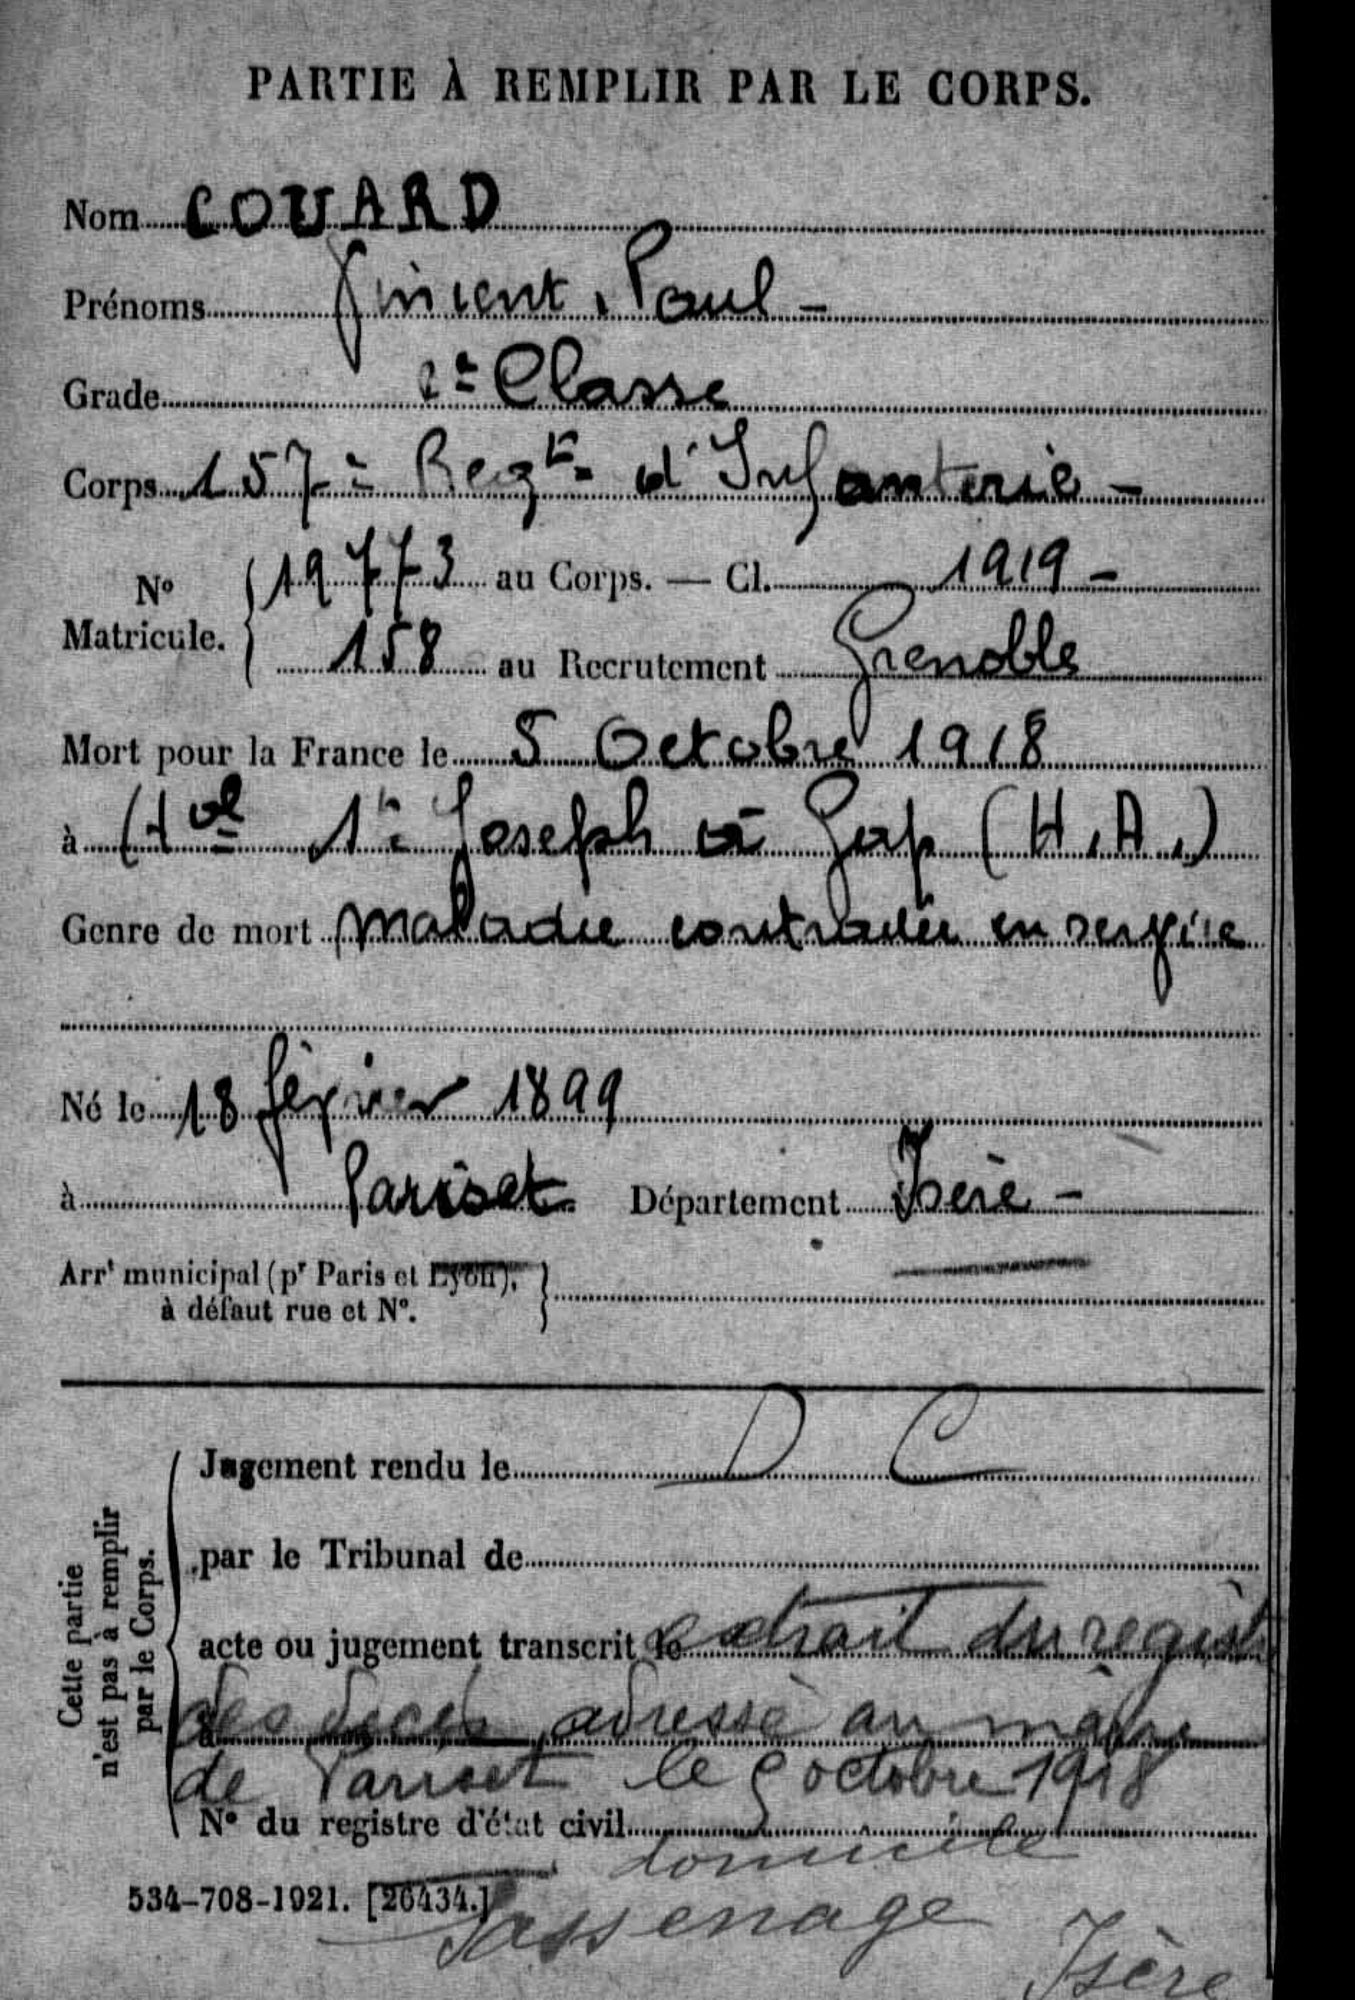 PARTIE À REMPLIR PAR LE CORPS.
Nom COUARD
Prénoms Vincent, Paul -
Grade 2e Classe
Corps 157e Regt d'Infanterie -
No Matricule. 19773 au Corps. — Cl. 1919 -
158 au Recrutement Grenoble
Mort pour la France le 5 Octobre 1918
à Hal St Joseph à Gap (H.A.)
Genre de mort maladie contractée en service
Né le 18 février 1899
à Pariset Département Isère -
Arrt municipal (pr Paris et Lyon),
à défaut rue et No.
D C
Jugement rendu le
par le Tribunal de
acte ou jugement transcrit le extrait du registre
des décès adressé au maire
de Pariset le octobre 1918
No du registre d'état civil
domicile
534-708-1921. [26434.]
Sassenage
Isère
Cette partie
n'est pas à remplir
par le Corps.